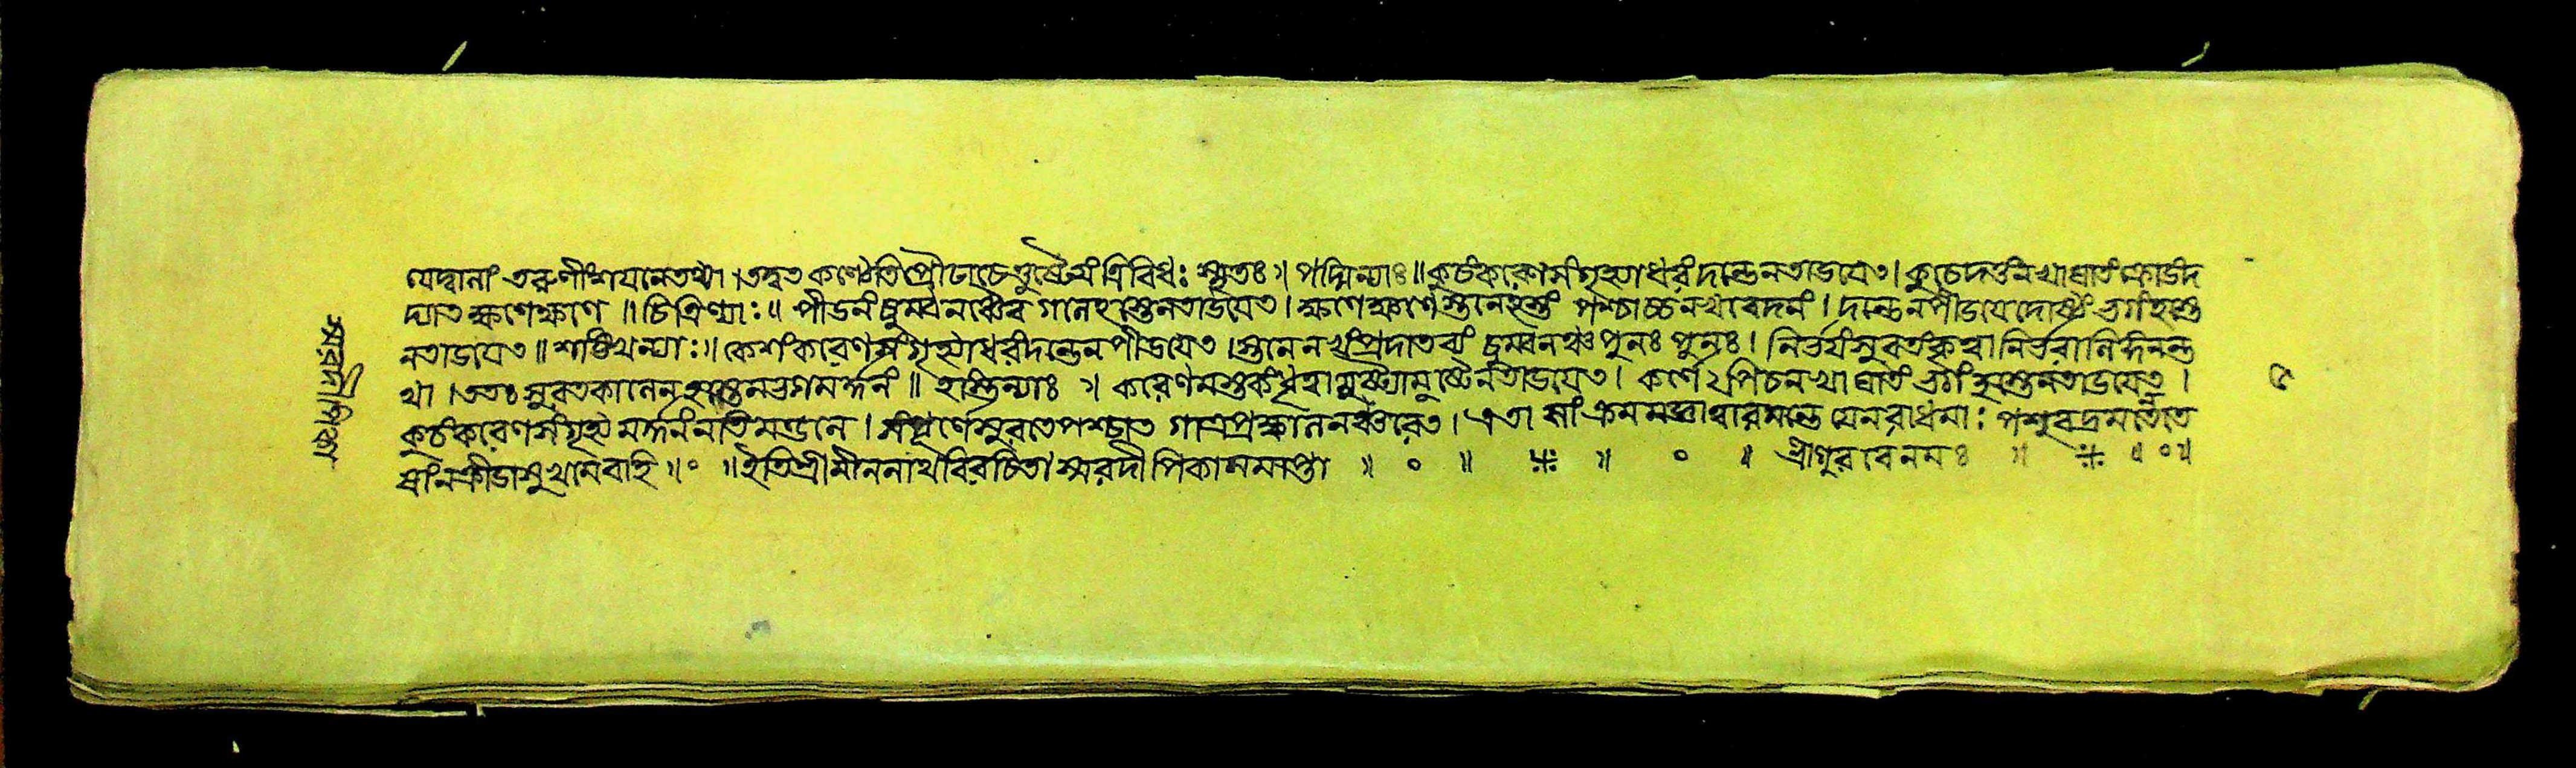 যেদ্বানাং তরুণীং শযনে তথা । তদ্বত কণ্ঠেতি প্রৌঢা চে ত্রিবিধঃ স্মৃতঃ ॥ পদ্মিন্যাঃ ॥ কুচং করেণ সংগৃহ্যাধরং দন্তেন তাডযেত । কুচে দত্তং নখাঘাতং ক্রীডং দ
দ্যাত ক্ষণেক্ষণে ॥ চিত্রিণ্যাঃ ॥ পীডনং চুম্বনঞ্চৈব গানে হস্তেন তাডযেত । ক্ষণে ক্ষণে স্তনে হস্তং পশ্চাচ্চ নখবেদনং । দন্তেন পীডযেদোষ্ঠং ভগং হস্তে
ন তাডযেত ॥ শঙ্খিন্যাঃ ॥ কেশং করেণ সংগৃহ্যাধরং দন্তেন পীডযেত । স্তনে নখং প্রদাতব্যং চুম্বনঞ্চ পুনঃ পুনঃ । নির্ভযং সুরতং কৃত্বা
থা । ততঃ সুরতকালেন হস্তেন ভগমর্দ্দনং ॥ হস্তিন্যাঃ ॥ করেণ মস্তকং ধৃত্বা মুষ্ট্যামুষ্টেন তাডযেত । কর্ণে ঽপি চ নখাঘাতং ভগং হস্তেন তাডযেত ।
কুচং করেণ সংগৃহ্য মর্দ্দনং নাভিমণ্ডলে । সংপূর্ণে সুরতে পশ্চাত গাত্রপ্রক্ষালনঞ্চরেত । এতা সাং ক্রমমন্তে যে নরাধমাঃ পশুবদ্রমতে তে
ষাং ন ক্রীডাসুখানবাহি ॥ ॰ ॥ ইতি শ্রীমীননাথবিরচিতা স্মরদীপিকা সমাপ্তা ॥ ॰ ॥ ॥ ॰ ॥ শ্রীগুরবে নমঃ ॥ ॥ ॰ ॥
স্মরদীপিকা